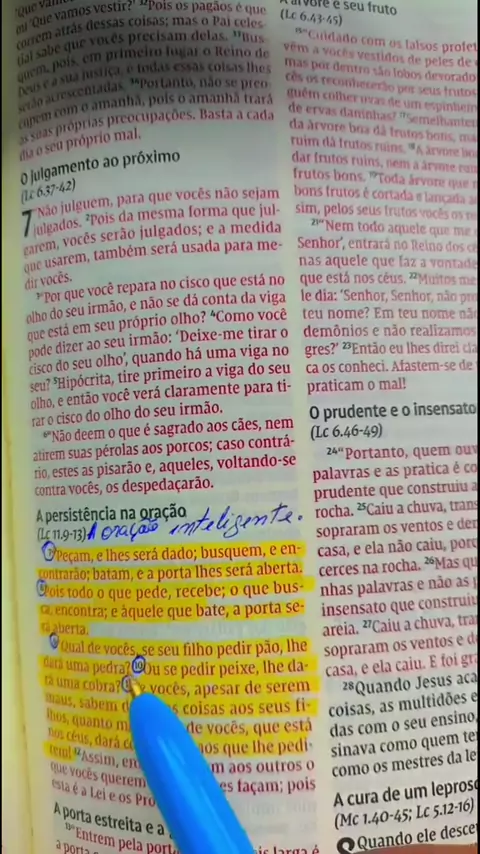 'Que vamos vestir?' ³²Pois os pagãos é que
correm atrás dessas coisas; mas o Pai celes-
tial sabe que vocês precisam delas. ³³Bus-
quem, pois, em primeiro lugar o Reino de
Deus e a sua justiça, e todas essas coisas lhes
serão acrescentadas. ³⁴Portanto, não se preo-
cupem com o amanhã, pois o amanhã trará
as suas próprias preocupações. Basta a cada
dia o seu próprio mal.
O julgamento ao próximo
(Lc 6.37-42)
7 "Não julguem, para que vocês não sejam
julgados. ²Pois da mesma forma que jul-
garem, vocês serão julgados; e a medida
que usarem, também será usada para me-
dir vocês.
³"Por que você repara no cisco que está no
olho do seu irmão, e não se dá conta da viga
que está em seu próprio olho? ⁴Como você
pode dizer ao seu irmão: 'Deixe-me tirar o
cisco do seu olho', quando há uma viga no
seu? ⁵Hipócrita, tire primeiro a viga do seu
olho, e então você verá claramente para ti-
rar o cisco do olho do seu irmão.
⁶"Não deem o que é sagrado aos cães, nem
atirem suas pérolas aos porcos; caso contrá-
rio, estes as pisarão e, aqueles, voltando-se
contra vocês, os despedaçarão.
A persistência na oração
(Lc 11.9-13) A oração inteligente.
⁷"Peçam, e lhes será dado; busquem, e en-
contrarão; batam, e a porta lhes será aberta.
⁸Pois todo o que pede, recebe; o que bus-
ca, encontra; e àquele que bate, a porta se-
rá aberta.
⁹"Qual de vocês, se seu filho pedir pão, lhe
dará uma pedra? ¹⁰Ou se pedir peixe, lhe da-
rá uma cobra? vocês, apesar de serem
maus, sabem coisas aos seus fi-
lhos, quanto de vocês, que está
nos céus, dará aos que lhe pedi-
rem! ¹²Assim, em aos outros o
que vocês querem es façam; pois
esta é a Lei e os Pro
A porta estreita e a
¹³"Entrem pela port is larga é
a porta
A árvore e seu fruto
(Lc 6.43-45)
¹⁵"Cuidado com os falsos profet
vêm a vocês vestidos de peles de
mas por dentro são lobos devorado
cês os reconhecerão por seus frutos
guém colher uvas de um espinheir
de ervas daninhas? ¹⁷Semelhanter
da árvore boa dá frutos bons, ma
ruim dá frutos ruins. ¹⁸A árvore bo
dar frutos ruins, nem a árvore ruin
frutos bons. ¹⁹Toda árvore que n
bons frutos é cortada e lançada a
sim, pelos seus frutos vocês os re
²¹"Nem todo aquele que me
Senhor', entrará no Reino dos cé
nas aquele que faz a vontade
que está nos céus. ²²Muitos me
le dia: 'Senhor, Senhor, não pro
teu nome? Em teu nome não
demônios e não realizamos
gres?' ²³Então eu lhes direi cla
ca os conheci. Afastem-se de
praticam o mal!
O prudente e o insensato
(Lc 6.46-49)
²⁴"Portanto, quem ouv
palavras e as pratica é co
prudente que construiu a
rocha. ²⁵Caiu a chuva, tran
sopraram os ventos e der
casa, e ela não caiu, porc
cerces na rocha. ²⁶Mas qu
nhas palavras e não as p
insensato que construiu
areia. ²⁷Caiu a chuva, tra
sopraram os ventos e d
casa, e ela caiu. E foi gra
²⁸Quando Jesus aca
coisas, as multidões e
das com o seu ensino,
sinava como quem te
como os mestres da le
A cura de um leproso
(Mc 1.40-45; Lc 5.12-16)
8 Quando ele desce